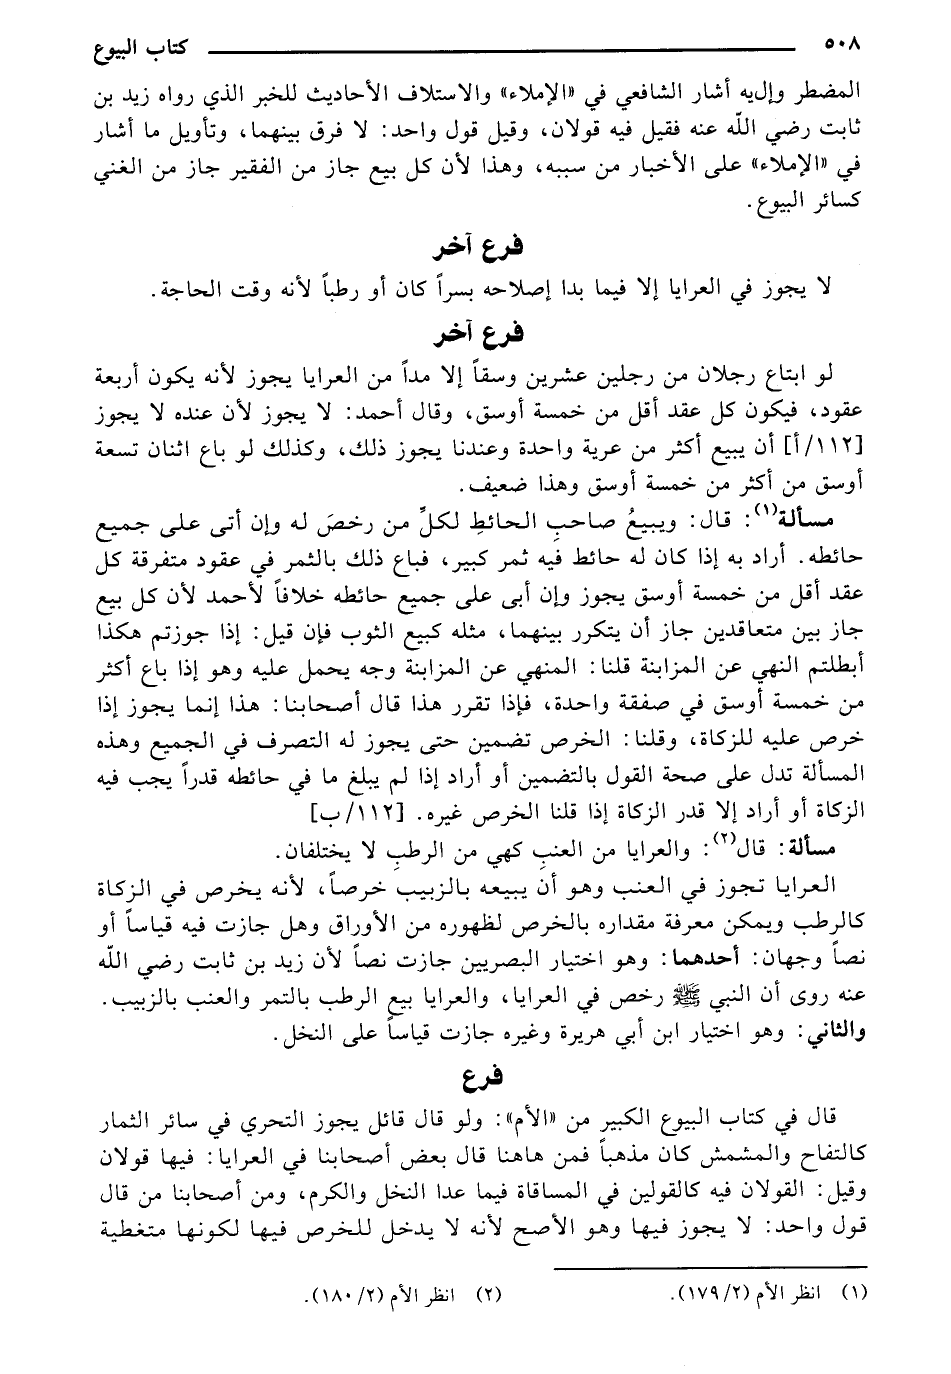 ٥٠٨ كتاب البيوع
المضطر وإليه أشار الشافعي في «الإملاء» والاستلاف الأحاديث للخبر الذي رواه زيد بن
ثابت رضي الله عنه فقيل فيه قولان، وقيل قول واحد: لا فرق بينهما، وتأويل ما أشار
في «الإملاء» على الأخبار من سببه، وهذا لأن كل بيع جاز من الفقير جاز من الغني
كسائر البيوع.
فرع آخر
لا يجوز في العرايا إلا فيما بدا إصلاحه بسراً كان أو رطباً لأنه وقت الحاجة.
فرع آخر
لو ابتاع رجلان من رجلين عشرين وسقاً إلا مداً من العرايا يجوز لأنه يكون أربعة
عقود، فيكون كل عقد أقل من خمسة أوسق، وقال أحمد: لا يجوز لأن عنده لا يجوز
[١١٢/أ] أن يبيع أكثر من عرية واحدة وعندنا يجوز ذلك، وكذلك لو باع اثنان تسعة
أوسق من أكثر من خمسة أوسق وهذا ضعيف.
مسألة(١): قال: ويبيعُ صاحبِ الحائطِ لكلِّ من رخصَ له وإن أتى على جميع
حائطه. أراد به إذا كان له حائط فيه ثمر كبير، فباع ذلك بالثمر في عقود متفرقة كل
عقد أقل من خمسة أوسق يجوز وإن أبى على جميع حائطه خلافاً لأحمد لأن كل بيع
جاز بين متعاقدين جاز أن يتكرر بينهما، مثله كبيع الثوب فإن قيل: إذا جوزتم هكذا
أبطلتم النهي عن المزابنة قلنا: المنهي عن المزابنة وجه يحمل عليه وهو إذا باع أكثر
من خمسة أوسق في صفقة واحدة، فإذا تقرر هذا قال أصحابنا: هذا إنما يجوز إذا
خرص عليه للزكاة، وقلنا: الخرص تضمين حتى يجوز له التصرف في الجميع وهذه
المسألة تدل على صحة القول بالتضمين أو أراد إذا لم يبلغ ما في حائطه قدراً يجب فيه
الزكاة أو أراد إلا قدر الزكاة إذا قلنا الخرص غيره. [١١٢/ب]
مسألة: قال(٢): والعرايا من العنبِ كهي من الرطبِ لا يختلفان.
العرايا تجوز في العنب وهو أن يبيعه بالزبيب خرصاً، لأنه يخرص في الزكاة
كالرطب ويمكن معرفة مقداره بالخرص لظهوره من الأوراق وهل جازت فيه قياساً أو
نصاً وجهان: أحدهما: وهو اختيار البصريين جازت نصاً لأن زيد بن ثابت رضي الله
عنه روى أن النبي ﷺ رخص في العرايا، والعرايا بيع الرطب بالتمر والعنب بالزبيب.
والثاني: وهو اختيار ابن أبي هريرة وغيره جازت قياساً على النخل.
فرع
قال في كتاب البيوع الكبير من «الأم»: ولو قال قائل يجوز التحري في سائر الثمار
كالتفاح والمشمش كان مذهباً فمن هاهنا قال بعض أصحابنا في العرايا: فيها قولان
وقيل: القولان فيه كالقولين في المساقاة فيما عدا النخل والكرم، ومن أصحابنا من قال
قول واحد: لا يجوز فيها وهو الأصح لأنه لا يدخل للخرص فيها لكونها متغطية
(١) انظر الأم (١٧٩/٢). (٢) انظر الأم (١٨٠/٢).